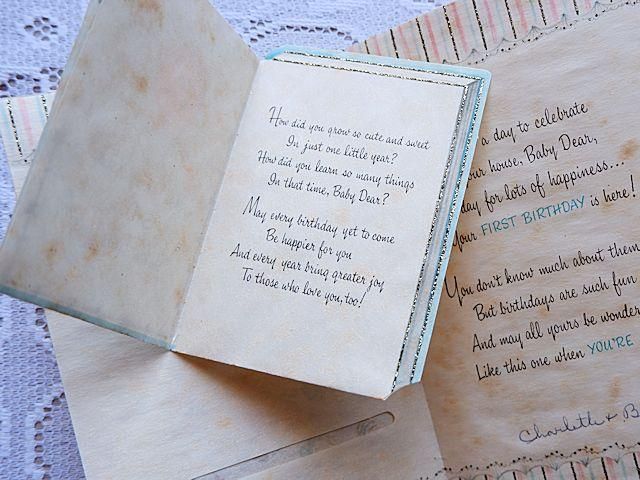 How did you grow so cute and sweet
In just one little year?
How did you learn so many things
In that time, Baby Dear?
May every birthday yet to come
Be happier for you
And every year bring greater joy
To those who love you, too!
a day to celebrate
house, Baby Dear,
day for lots of happiness...
FIRST BIRTHDAY is here!
You don't know much about them
But birthdays are such fun
And may all yours be
Like this one when YOU'RE
Charlotte &